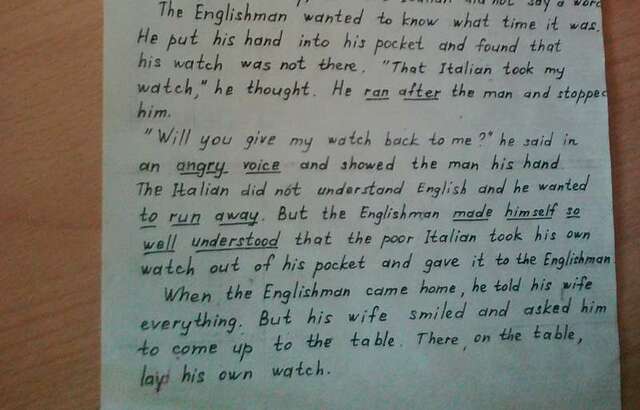 did not say a word
The Englishman wanted to know what time it was.
He put his hand into his pocket and found that
his watch was not there. "That Italian took my
watch," he thought. He ran after the man and stopped
him.
"Will you give my watch back to me?" he said in
an angry voice and showed the man his hand.
The Italian did not understand English and he wanted
to run away. But the Englishman made himself so
well understood that the poor Italian took his own
watch out of his pocket and gave it to the Englishman.
When the Englishman came home, he told his wife
everything. But his wife smiled and asked him
to come up to the table. There, on the table,
lay his own watch.